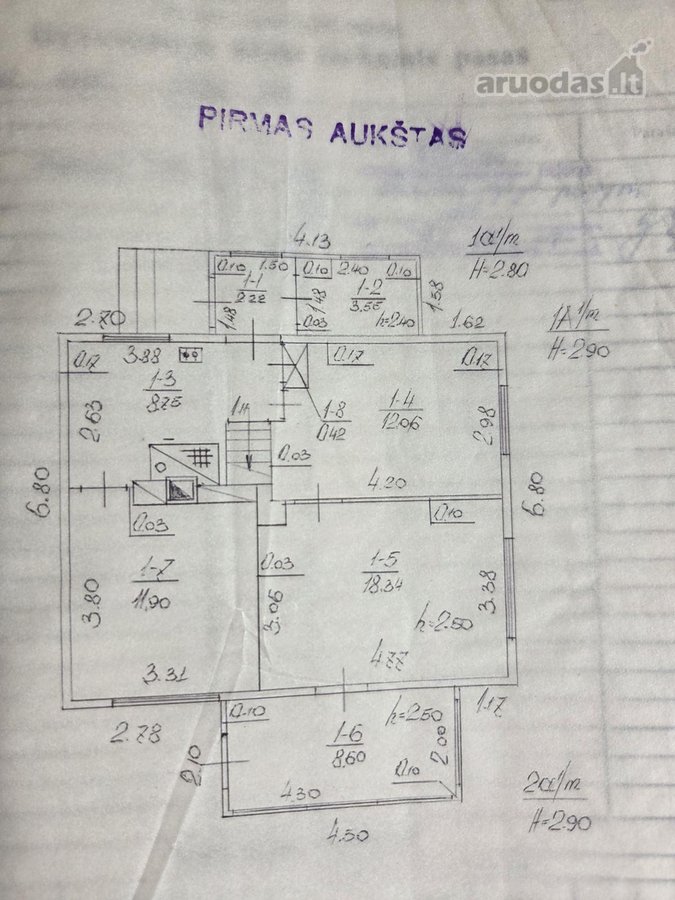 aruodas.lt
PIRMAS AUKŠTAS
4.13
1a1/m
H=2.80
0.10 1.50 0.10 2.40 0.10
1-1
2.22
1-2
3.55
1.48
1.48
1.58
0.03
h=2.40
1.62
1A1/m
H=2.90
2.70
3.88
0.17
0.17
0.17
1-3
8.75
1-8
0.42
1-4
12.06
2.63
2.98
0.03
4.20
6.80
6.80
0.03
0.10
1-7
11.90
0.03
1-5
18.34
3.80
3.06
3.38
h=2.50
3.31
4.77
2.78
0.10
h=2.50
1.17
1-6
8.60
2.10
2.00
0.10
4.30
4.50
2a1/m
H=2.90